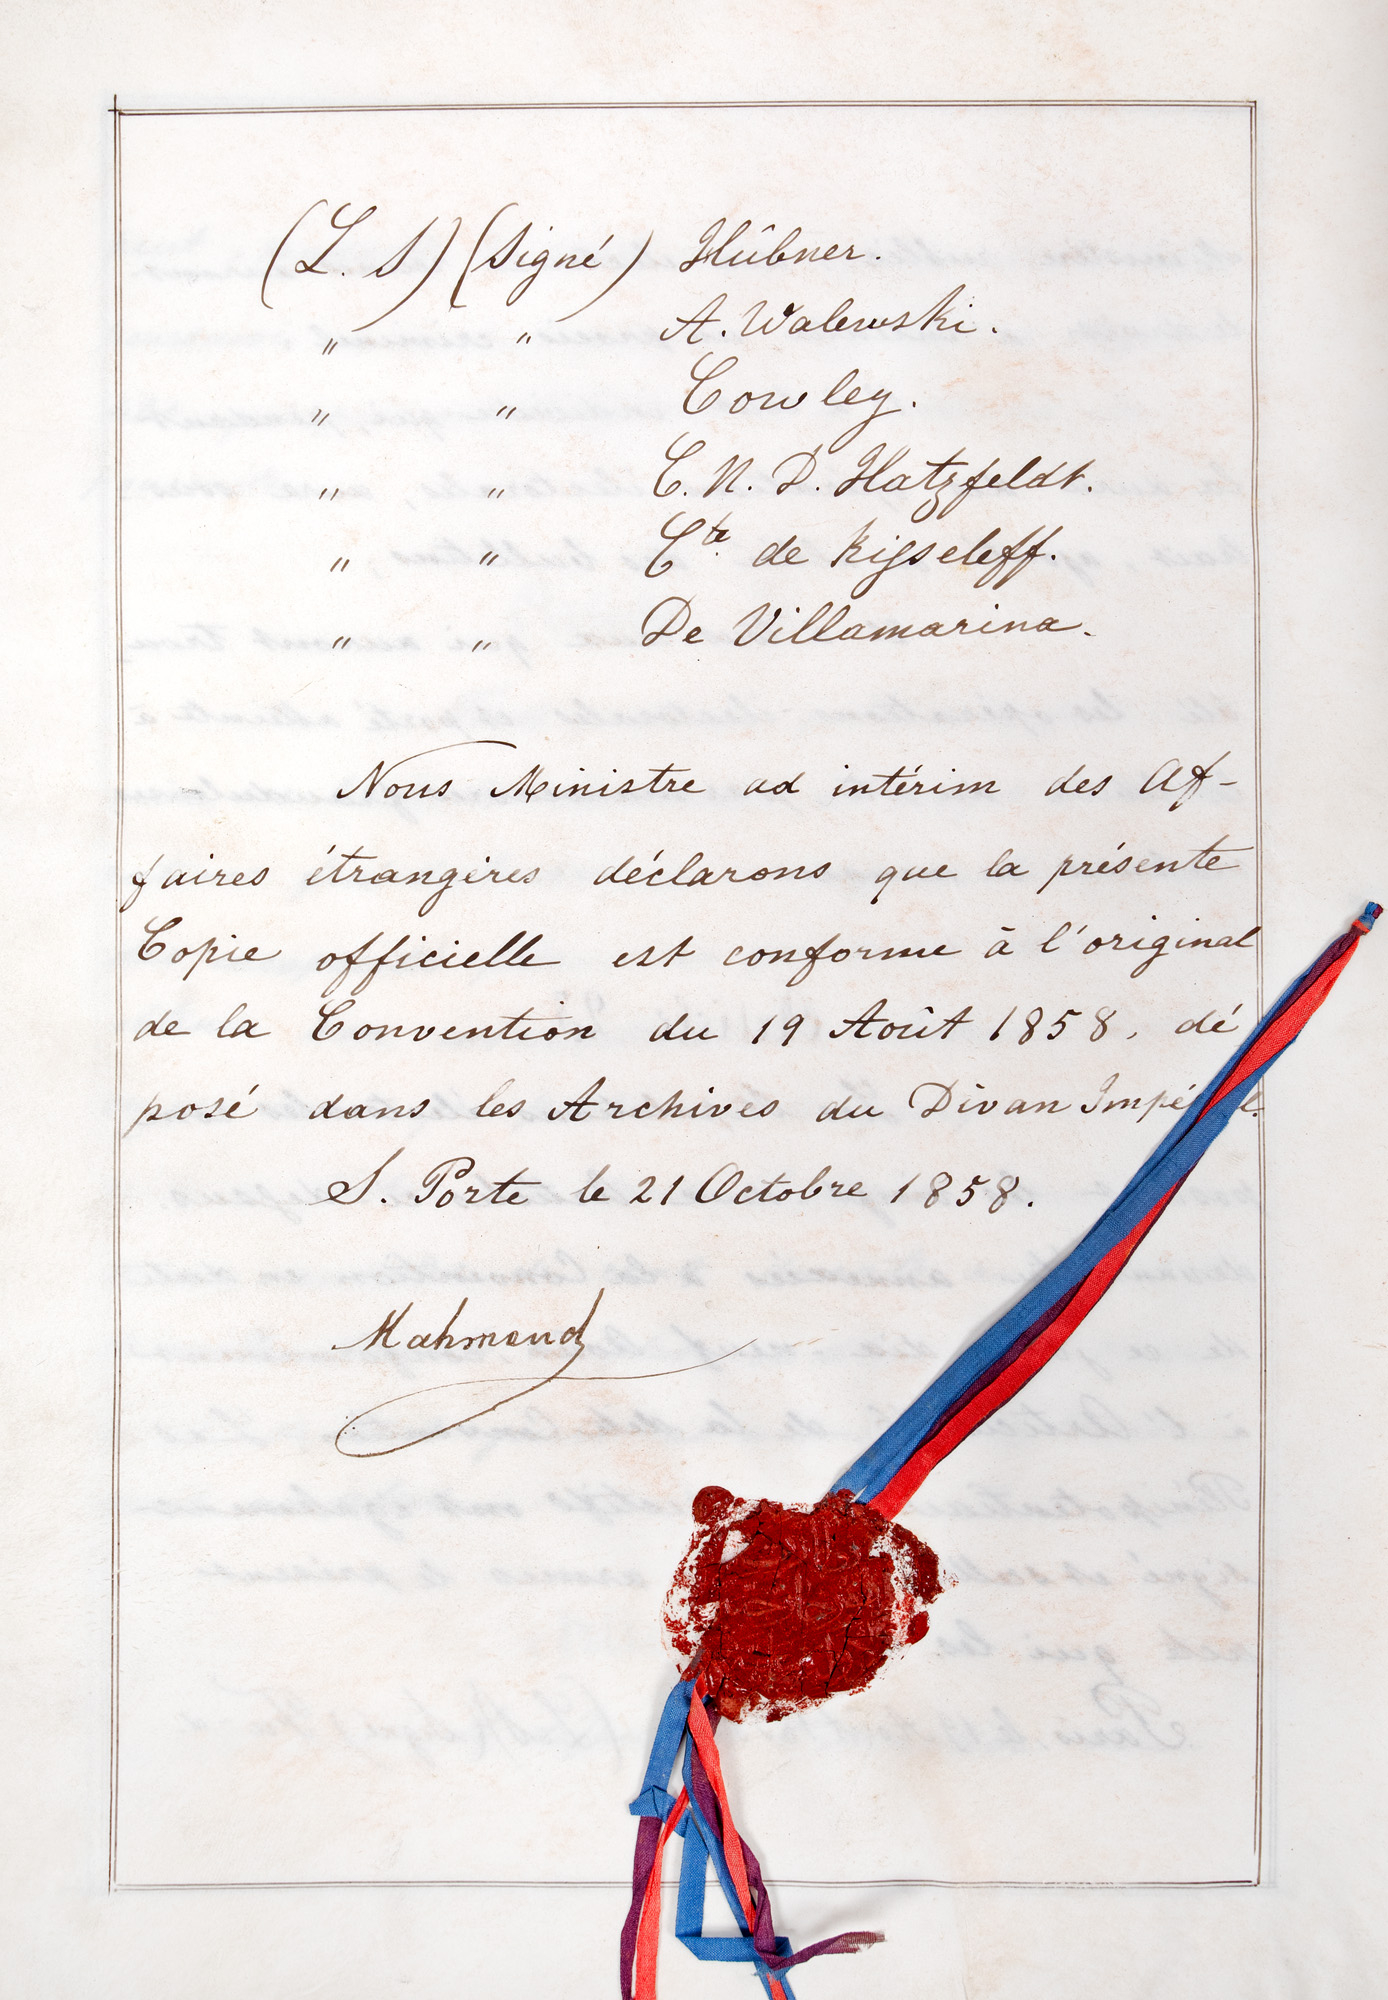 (L. S) (Signé) Hübner.
„ „ A. Walewski.
„ „ Cowley.
„ „ C. N. D. Hatzfeldt.
„ „ Cte de Kisseleff.
„ „ De Villamarina.
Nous Ministre ad intérim des Af-
faires étrangères déclarons que la présente
Copie officielle est conforme à l'original
de la Convention du 19 Août 1858, dé
posé dans les Archives du Divan
S. Porte le 21 Octobre 1858.
Mahmoud